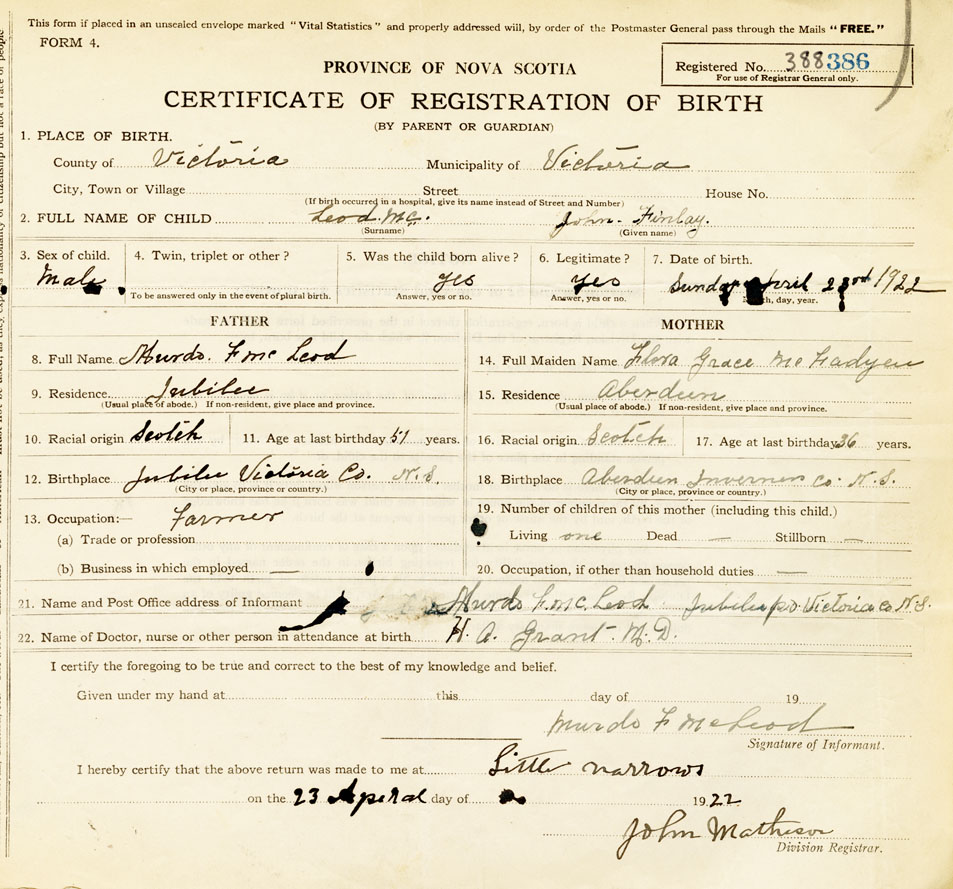 This form if placed in an unsealed envelope marked "Vital Statistics" and properly addressed will, by order of the Postmaster General pass through the Mails "FREE."
FORM 4.
Registered No. 388386
For use of Registrar General only.
PROVINCE OF NOVA SCOTIA
CERTIFICATE OF REGISTRATION OF BIRTH
(BY PARENT OR GUARDIAN)
1. PLACE OF BIRTH.
County of Victoria Municipality of Victoria
City, Town or Village Street House No.
(If birth occurred in a hospital, give its name instead of Street and Number)
2. FULL NAME OF CHILD Leod Mc. John. Finlay.
(Surname) (Given name)
3. Sex of child. 4. Twin, triplet or other? 5. Was the child born alive? 6. Legitimate? 7. Date of birth.
Male yes yes Sunday April 23rd 1922
To be answered only in the event of plural birth. Answer, yes or no. Answer, yes or no. day, year.
FATHER MOTHER
8. Full Name Murdo. F Mc Leod 14. Full Maiden Name Flora Grace Mc Fadyen
9. Residence Jubilee 15. Residence Aberdeen
(Usual place of abode.) If non-resident, give place and province. (Usual place of abode.) If non-resident, give place and province.
10. Racial origin Scotch 11. Age at last birthday 51 years. 16. Racial origin Scotch 17. Age at last birthday 36 years.
12. Birthplace Jubilee Victoria Co. N.S. 18. Birthplace Aberdeen Inverness Co. N.S.
(City or place, province or country.) (City or place, province or country.)
13. Occupation:— Farmer 19. Number of children of this mother (including this child.)
(a) Trade or profession Living one Dead — Stillborn —
(b) Business in which employed — 20. Occupation, if other than household duties —
21. Name and Post Office address of Informant Murdo F Mc Leod Jubilee p.o. Victoria co N.S.
22. Name of Doctor, nurse or other person in attendance at birth H. A. Grant M.D.
I certify the foregoing to be true and correct to the best of my knowledge and belief.
Given under my hand at this day of 19
Murdo F McLeod
Signature of Informant.
I hereby certify that the above return was made to me at Little narrows
on the 23 Aperal day of 1922
John Matheson
Division Registrar.